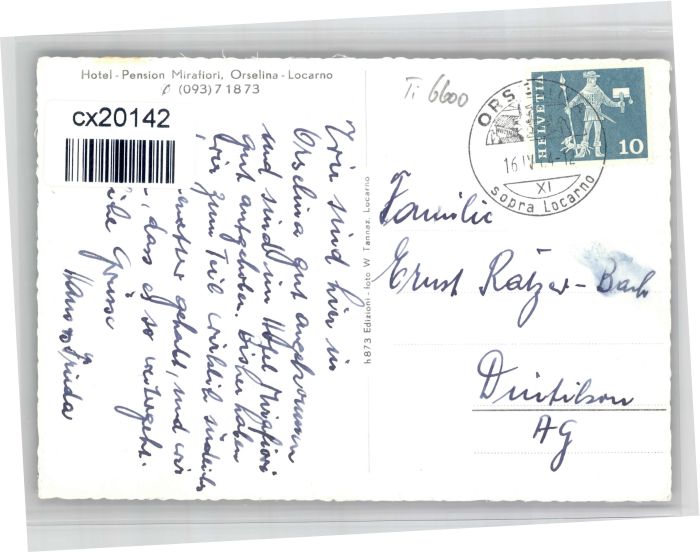 Hotel-Pension Mirafiori, Orselina-Locarno
(093) 71873
cx20142
Ti 6600
ORS
16 IV
XI
sopra Locarno
HELVETIA
10
h873 Edizioni-foto W. Tannaz, Locarno
Wir sind hier in
Orselina gut angekommen
und sind im Hotel Mirafiori
gut aufgehoben. Bisher haben
wir zum Teil wirklich
gehabt, und wir
, das es so weitergeht.
Grüsse
Hans & Frieda
Familie
Ernst Rätzer-Bach
Dintikon
AG